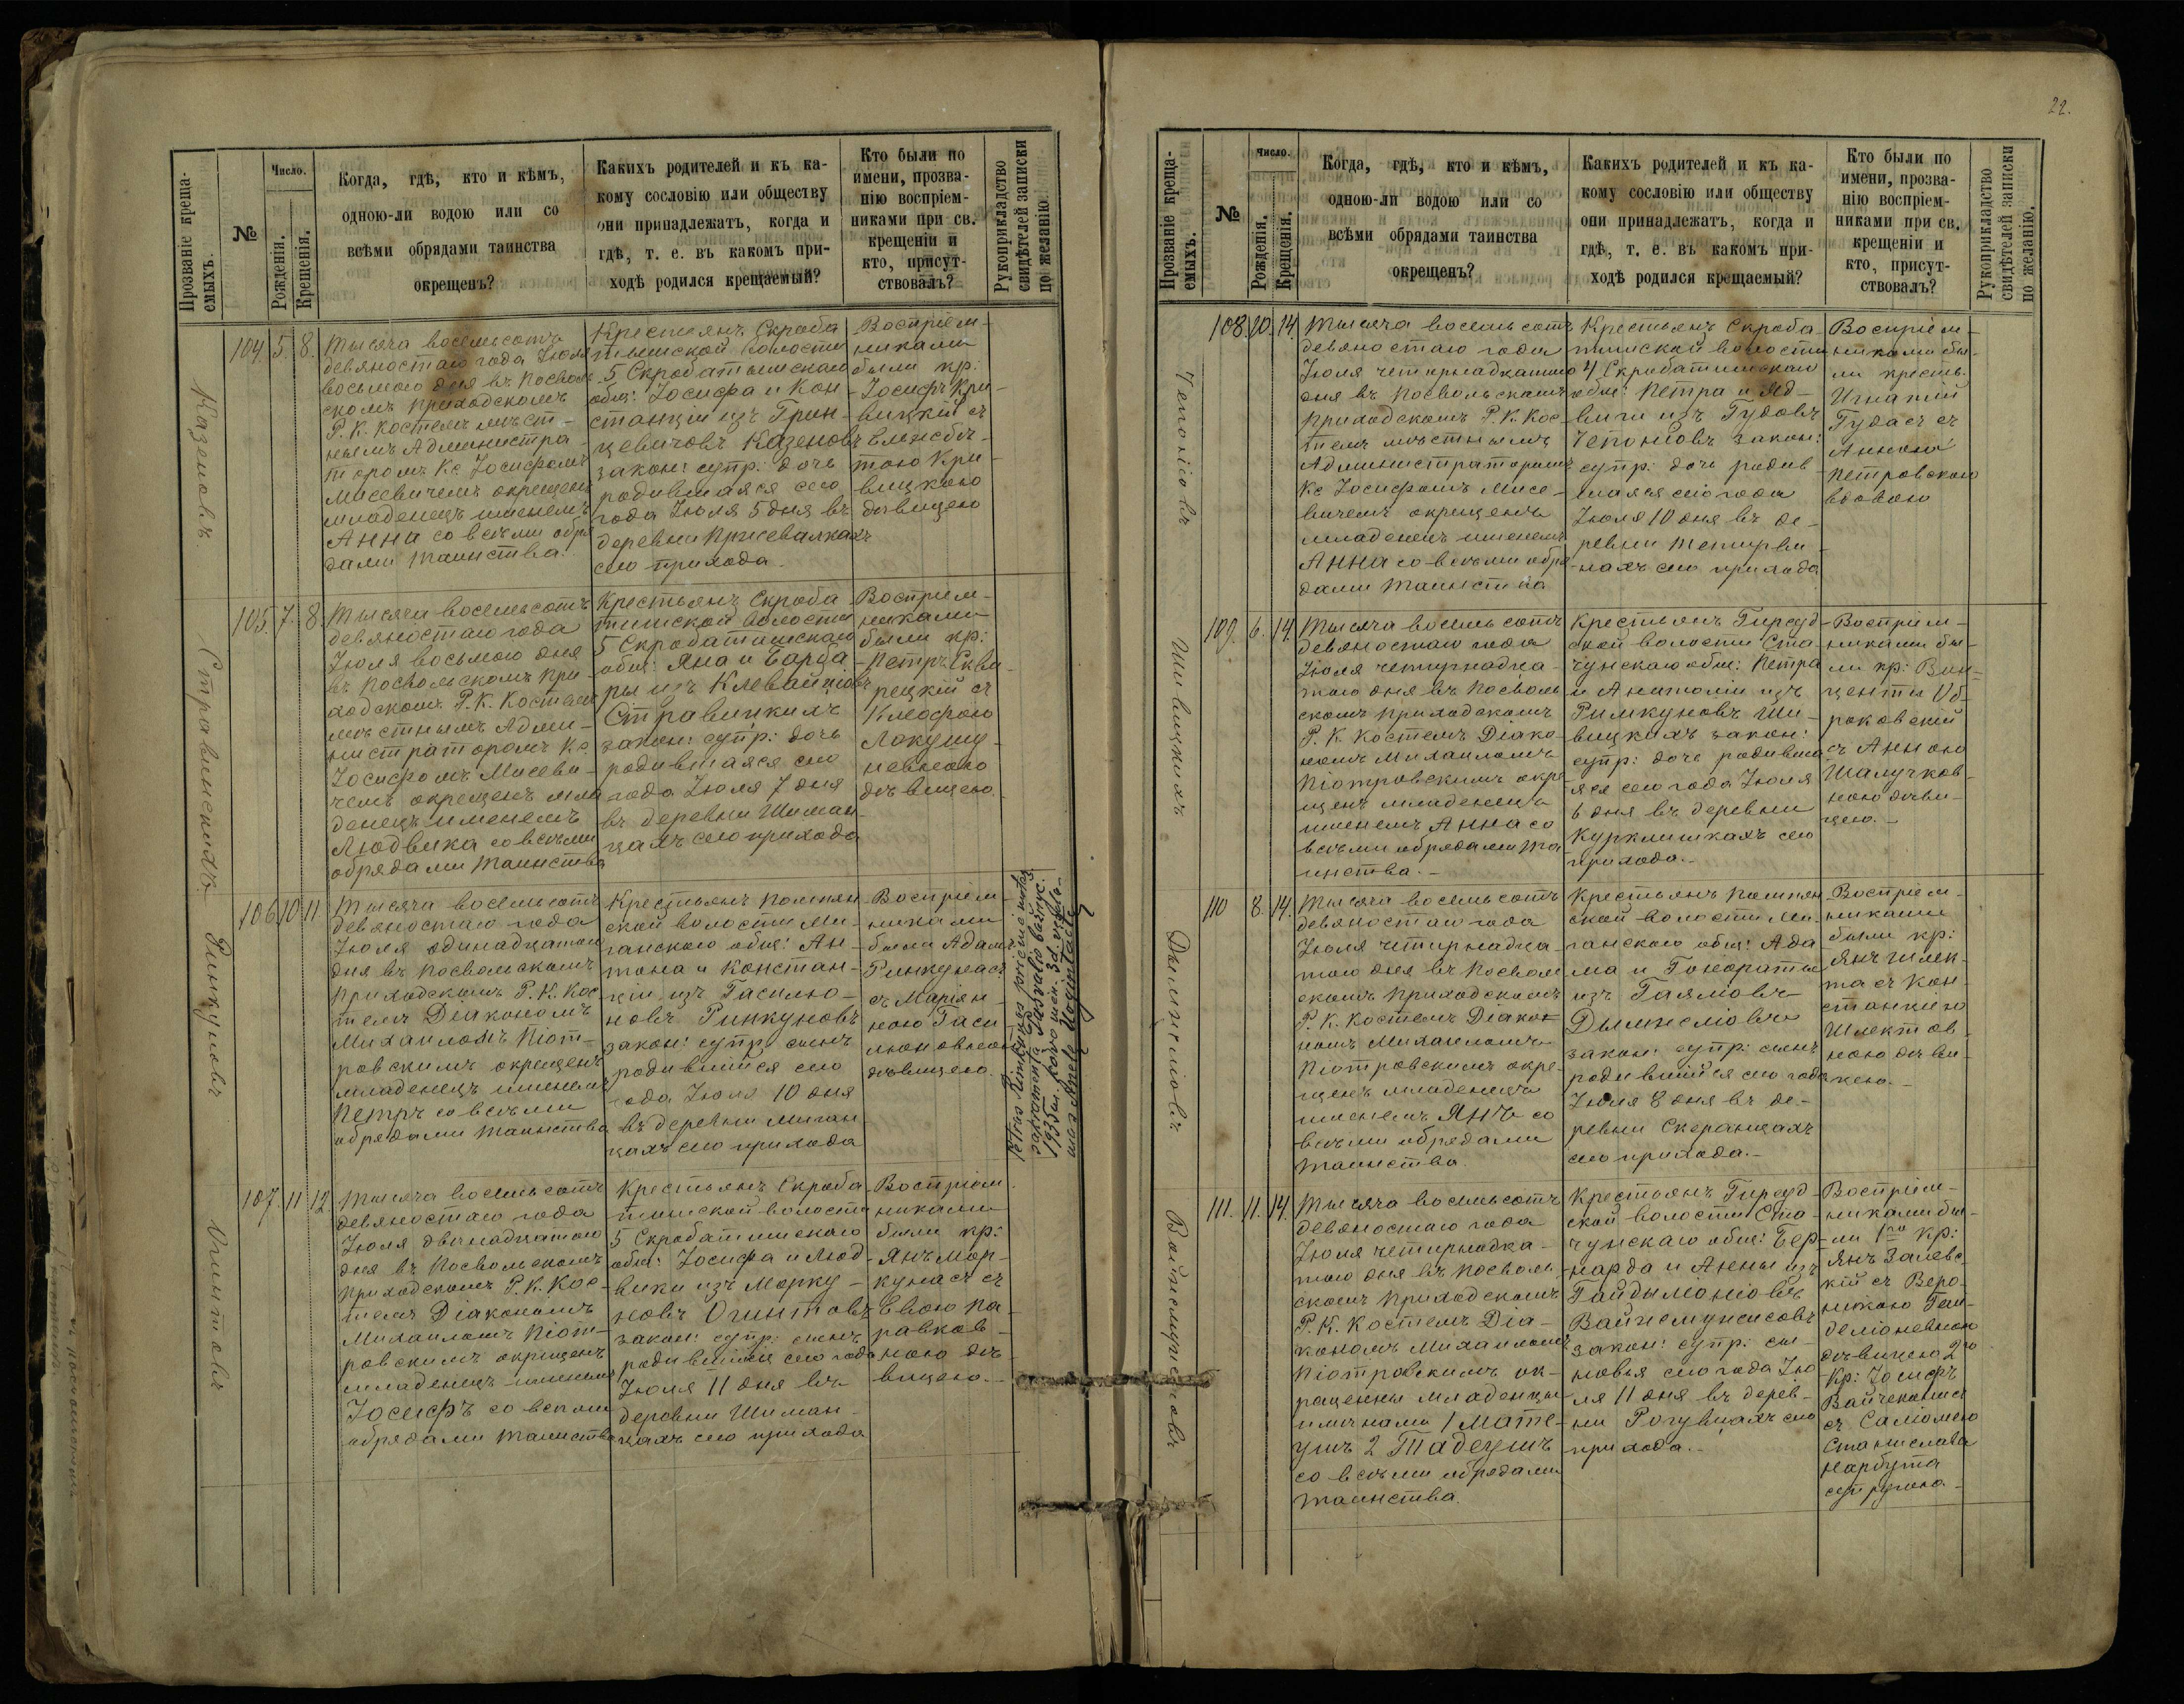 Прозваніе креща-
емыхъ.
№
Число.
Рожденія.
Крещенія.
Когда, гдѣ, кто и кѣмъ,
одною-ли водою или со
всѣми обрядами таинства
окрещенъ?
Какихъ родителей и къ ка-
кому сословію или обществу
они принадлежатъ, когда и
гдѣ, т. е. въ какомъ при-
ходѣ родился крещаемый?
Кто были по
имени, прозва-
нію воспріем-
никами при св.
крещеніи и
кто, присут-
ствовалъ?
Рукоприкладство
свидѣтелей записки
по желанію.
Казеновъ
104. 5. 8.
Тысяча восемьсотъ
девяностаго года Іюля
восьмого дня въ Посволь
скомъ приходскомъ
Р. К. Костелѣ мѣст-
нымъ Администра-
торомъ Кс Іосифомъ
Мисевичемъ окрещенъ
младенецъ именемъ
Анна со всѣми обря
дами таинства.
Крестьянъ Скроба
тишской волости
5 Скробатишскаго
общ: Іосифа и Кон
станціи изъ Грин-
цевичовъ Казеновъ
закон: супр: дочь
родившаяся сего
года Іюля 5 дня въ
деревни
сего прихода.
Воспріем-
никами
были кр:
Іосифъ Кри-
вицкій съ
Елисбѣ-
тою Кри-
вицкою
дѣвицею
Стравинскихъ
105. 7. 8.
Тысяча восемьсотъ
девяностаго года
Іюля восьмого дня
въ Посвольскомъ при-
ходскомъ Р. К. Костелѣ
мѣстнымъ Адми-
нистраторомъ Кс
Іосифомъ Мисеви-
чемъ окрещенъ мла
денецъ именемъ
Людвика со всѣми
обрядами таинства
Крестьянъ Скроба
тишской волости
5 Скробатишскаго
общ: Яна и Барба
ры изъ
закон: супр: дочь
родившаяся сего
года Іюля 7 дня
въ деревни Шиман
цахъ сего прихода
Воспріем-
никами
были кр:
Петръ Скви-
рецкій съ
дѣвицею.
Римкуновъ
106. 10. 11.
Тысяча восемьсотъ
девяностаго года
Іюля одинадцатаго
дня въ Посвольскомъ
приходскомъ Р. К. Кос-
телѣ Діакономъ
Михаиломъ Піот-
ровскимъ окрещенъ
младенецъ именемъ
Петръ со всѣми
обрядами таинства
Крестьянъ Помпян
ской волости Ми-
ганскаго общ: Ан-
тона и Констан-
ціи изъ Гасилю-
новъ Ринкуновъ
закон: супр: сынъ
родившійся сего
года Іюля 10 дня
въ деревни Миган
цахъ сего прихода
Воспріем-
никами
были Адамъ
Ринкунасъ
съ Маріян-
ною Гаси
люновною
дѣвицею.
Petras Rimkūnas priėmė moterystės
sakramentą Pasvalio bažnyč.
1935 m.
Огинтовъ
107. 11. 12.
Тысяча восемьсотъ
девяностаго года
Іюля двѣнадцатаго
дня въ Посвольскомъ
приходскомъ Р. К. Кос-
телѣ Діакономъ
Михаиломъ Піот-
ровскимъ окрещенъ
младенецъ именемъ
Іосифъ со всѣми
обрядами таинства
Крестьянъ Скроба
тишской волости
5 Скробатишскаго
общ: Іосифа и Люд-
вики изъ Морку-
новъ Огинтовъ
закон: супр: сынъ
родившійся сего года
Іюля 11 дня въ
деревни Шиман-
цахъ сего прихода
Воспріем
никами
были кр:
Янъ Мор-
кунасъ съ
Евою Па-
равков-
ною дѣ-
вицею.
22.
Прозваніе креща-
емыхъ.
№
Число.
Рожденія.
Крещенія.
Когда, гдѣ, кто и кѣмъ,
одною-ли водою или со
всѣми обрядами таинства
окрещенъ?
Какихъ родителей и къ ка-
кому сословію или обществу
они принадлежатъ, когда и
гдѣ, т. е. въ какомъ при-
ходѣ родился крещаемый?
Кто были по
имени, прозва-
нію воспріем-
никами при св.
крещеніи и
кто, присут-
ствовалъ?
Рукоприкладство
свидѣтелей записки
по желанію.
Чепоніовъ
108. 10. 14.
Тысяча восемьсотъ
девяностаго года
Іюля четырнадцатаго
дня въ Посвольскомъ
приходскомъ Р. К. Кос-
телѣ мѣстнымъ
Администраторомъ
Кс Іосифомъ Мисе-
вичемъ окрещенъ
младенецъ именемъ
Анна со всѣми обря-
дами таинства
Крестьянъ Скроба-
тишской волости
4 Скробатишскаго
общ: Петра и Яд-
виги изъ Гудовъ
Чепоніовъ закон:
супр: дочь родив
шаяся сего года
Іюля 10 дня въ де-
ревни
сего прихода
Воспріем-
никами бы-
ли кресть.
Игнатій
Гудасъ съ
Анною
Петровскою
вдовою
Шивицкихъ
109. 6. 14.
Тысяча восемь сотъ
девяностаго года
Іюля четырнадца-
таго дня въ Посволь
скомъ приходскомъ
Р. К. Костелѣ Діако-
номъ Михаиломъ
Піотровскимъ окре-
щенъ младенецъ
именемъ Анна со
всѣми обрядами та
инства.
Крестьянъ Гирсуд
ской волости Ста-
чунскаго общ: Петра
и Анатоліи изъ
Римкуновъ Ши-
вицкихъ закон:
супр: дочь родивша
яся сего года Іюля
6 дня въ деревни
Куркишкахъ сего
прихода.
Воспріем-
никами бы-
ли кр: Вин-
центи Уб-
роковскій
съ Анною
Шалучков-
ною дѣви-
цею.
110 8. 14.
Тысяча восемьсотъ
девяностаго года
Іюля четырнадца-
таго дня въ Посволь
скомъ приходскомъ
Р. К. Костелѣ Діако-
номъ Михаиломъ
Піотровскимъ окре-
щенъ младенецъ
именемъ Янъ со
всѣми обрядами
таинства.
Крестьянъ Помпян
ской волости Ми-
ганскаго общ: Ада
ма и Гонораты
изъ Гаяліовъ
закон: супр: сынъ
родившійся сего года
Іюля 8 дня въ де-
ревни Скеранцахъ
сего прихода.
Воспріем-
никами
были кр:
Янъ Шлек-
та съ Кон-
станціею
Шлектов-
ною дѣви-
цею.
111. 11. 14.
Тысяча восемьсотъ
девяностаго года
Іюля четырнадца-
таго дня въ Посволь-
скомъ приходскомъ
Р. К. Костелѣ Діа-
кономъ Михаиломъ
Піотровскимъ ок-
рещенны младенцы
именами 1 Мате-
ушъ 2 Тадеушъ
со всѣми обрядами
таинства.
Крестьянъ Гирсуд
ской волости Ста-
чунскаго общ: Бер-
нарда и Анны изъ
Гайдымоніовъ
закон: супр: сы-
новья сего года Ію
ля 11 дня въ дерев-
ни Рогувцахъ сего
прихода.
Воспріем-
никами бы-
ли 1го кр:
Янъ Залевс-
кій съ Веро-
никою Гай-
деліоневною
дѣвицею 2го
Кр: Іосифъ
съ Саломею
Станислава
Нарбута
супругою